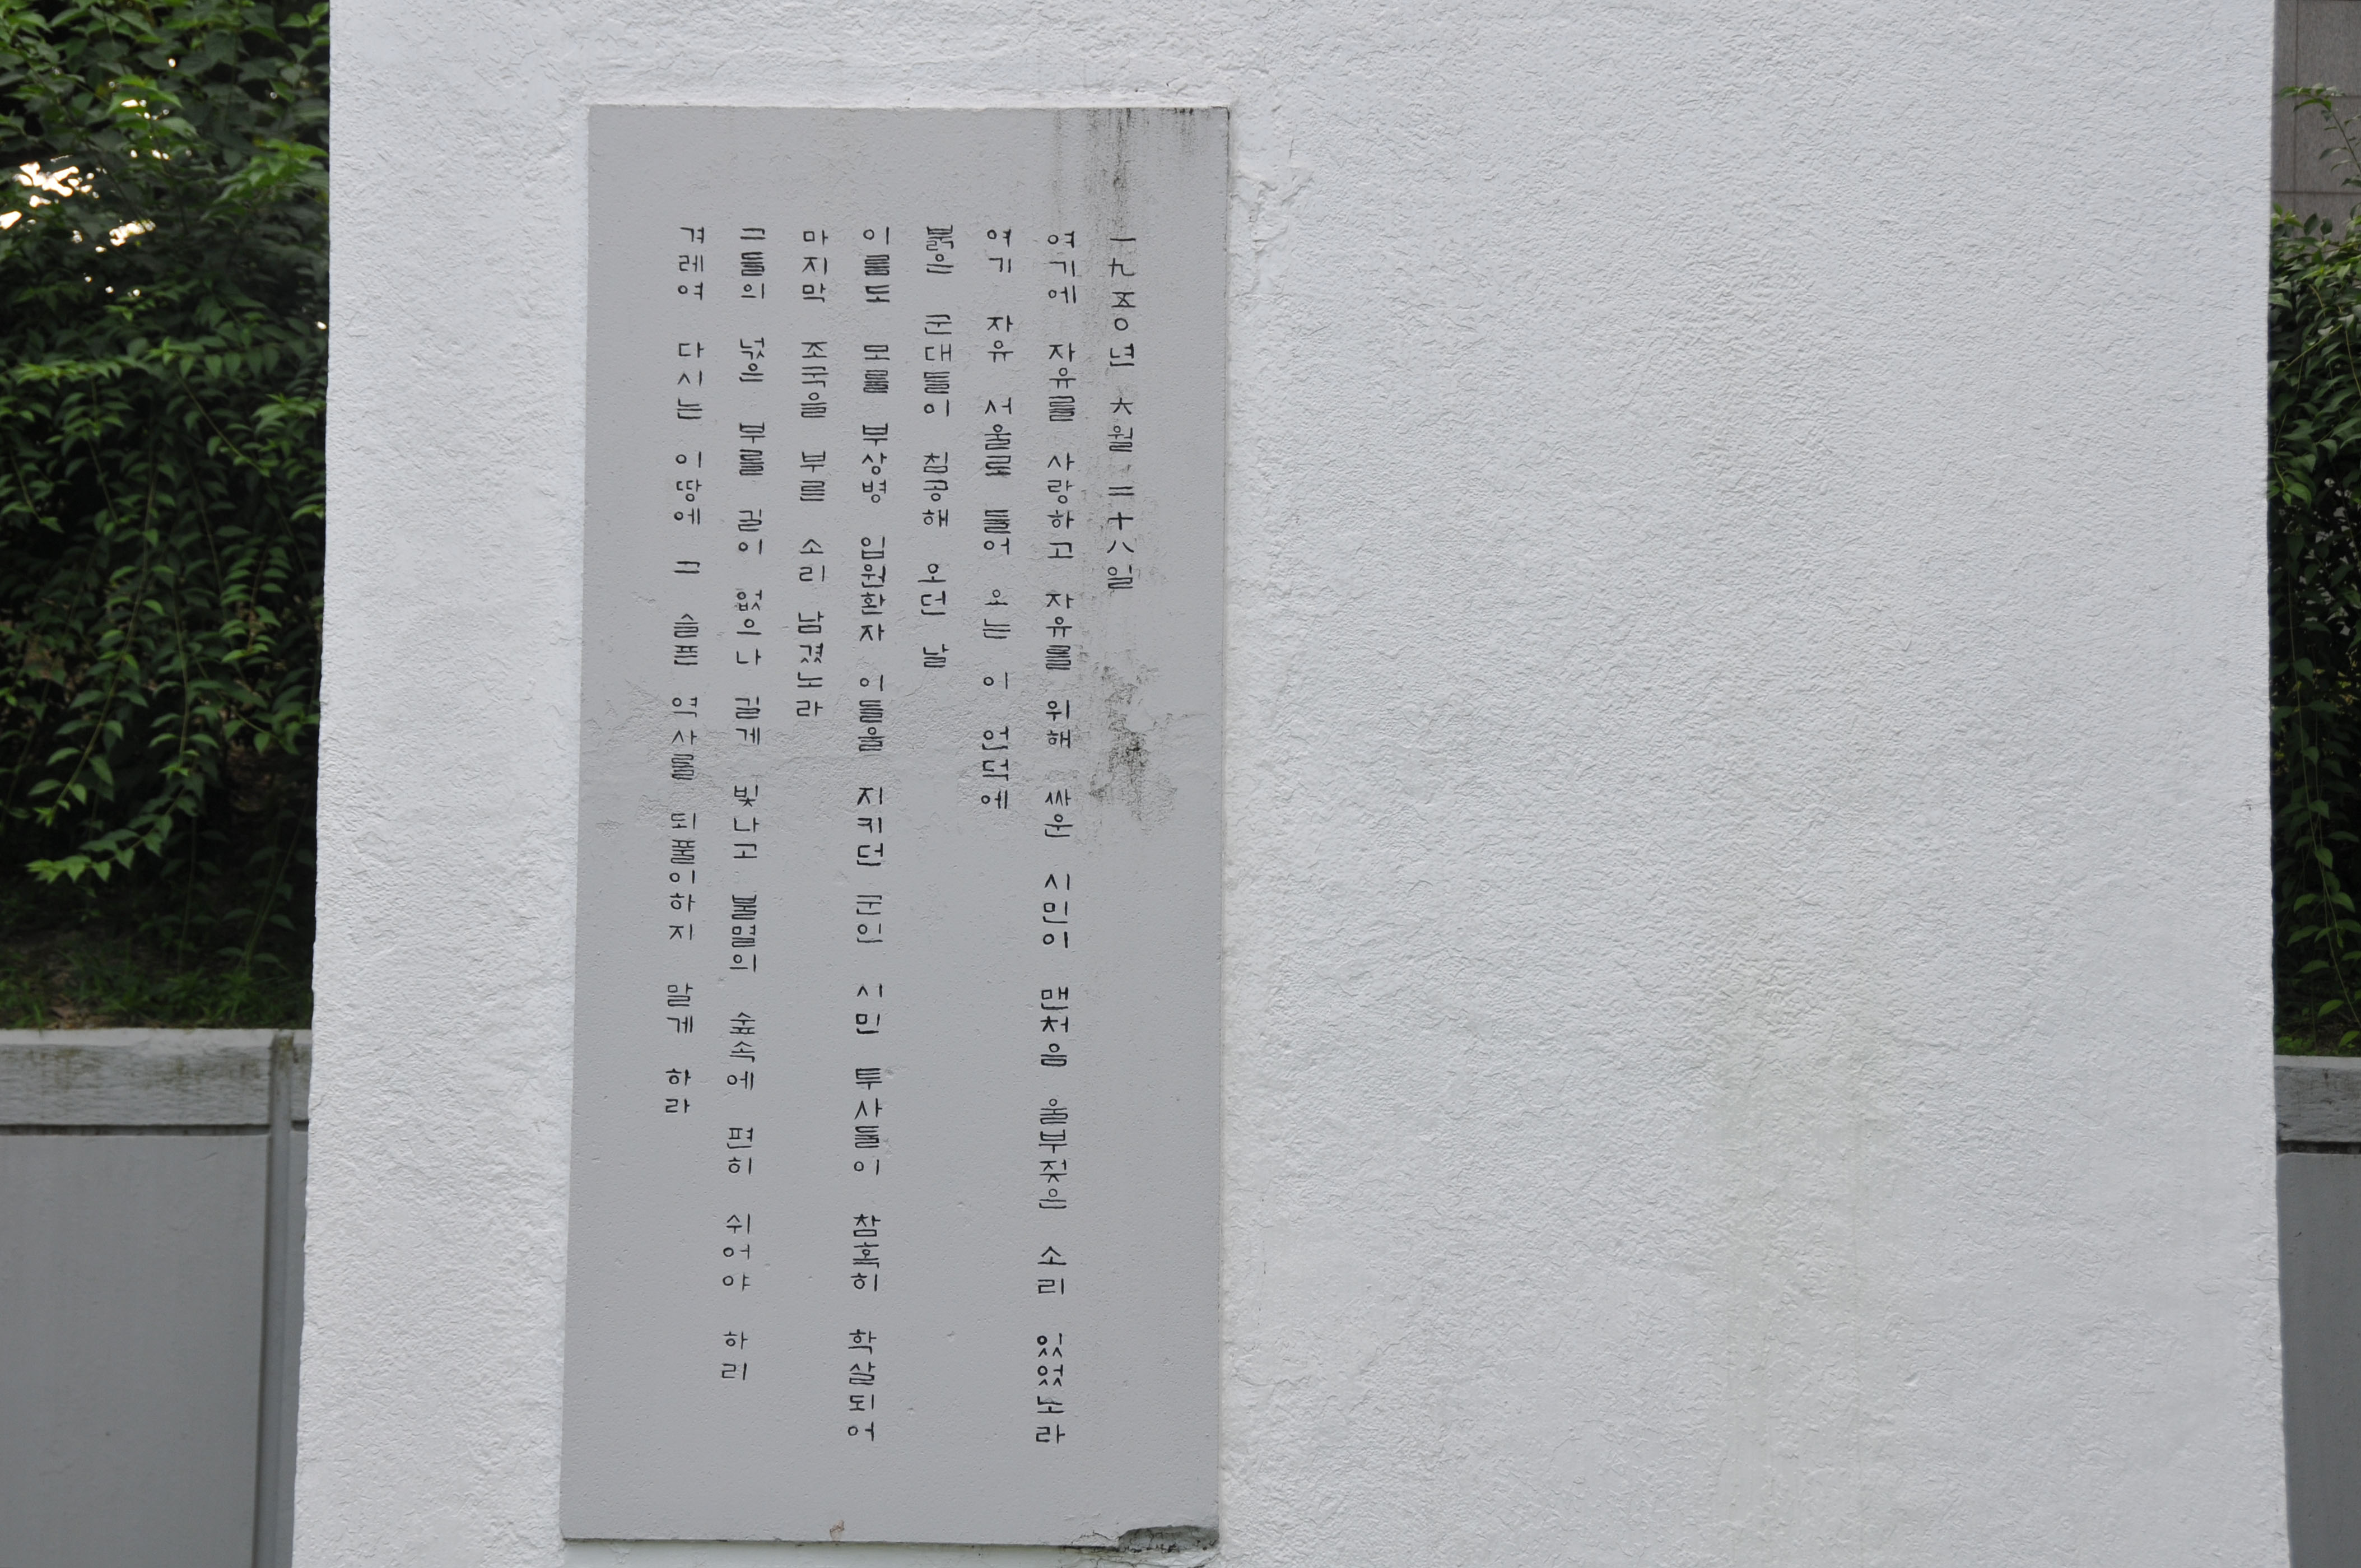 一九五0년 六월 二十八일
여기에 자유를 사랑하고 자유를 위해 싸운 시민이 맨처음 울부젖은 소리 있었노라
여기 자유 서울로 들어 오는 이 언덕에
붉은 군대들이 침공해 오던 날
이름도 모를 부상병 입원환자 이들을 지키던 군인 시민 투사들이 참혹히 학살되어
마지막 조국을 부른 소리 남겼노라
그들의 넋은 부를 길이 없으나 길게 빛나고 불멸의 숲속에 편히 쉬어야 하리
겨레여 다시는 이땅에 그 슬픈 역사를 되풀이하지 말게 하라